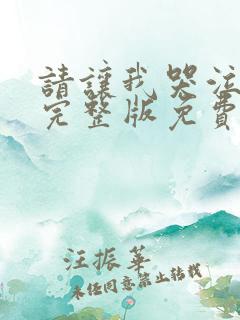 請讓我哭泣
完整版免費
汪振華
未經同意禁止轉載